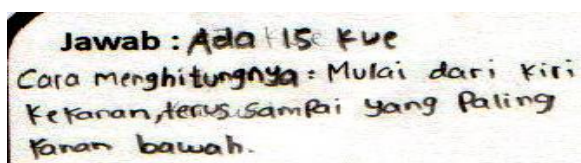 Jawab : Ada 15 kue
Cara menghitungnya : Mulai dari kiri
kekanan, terus sampai yang Paling
kanan bawah.